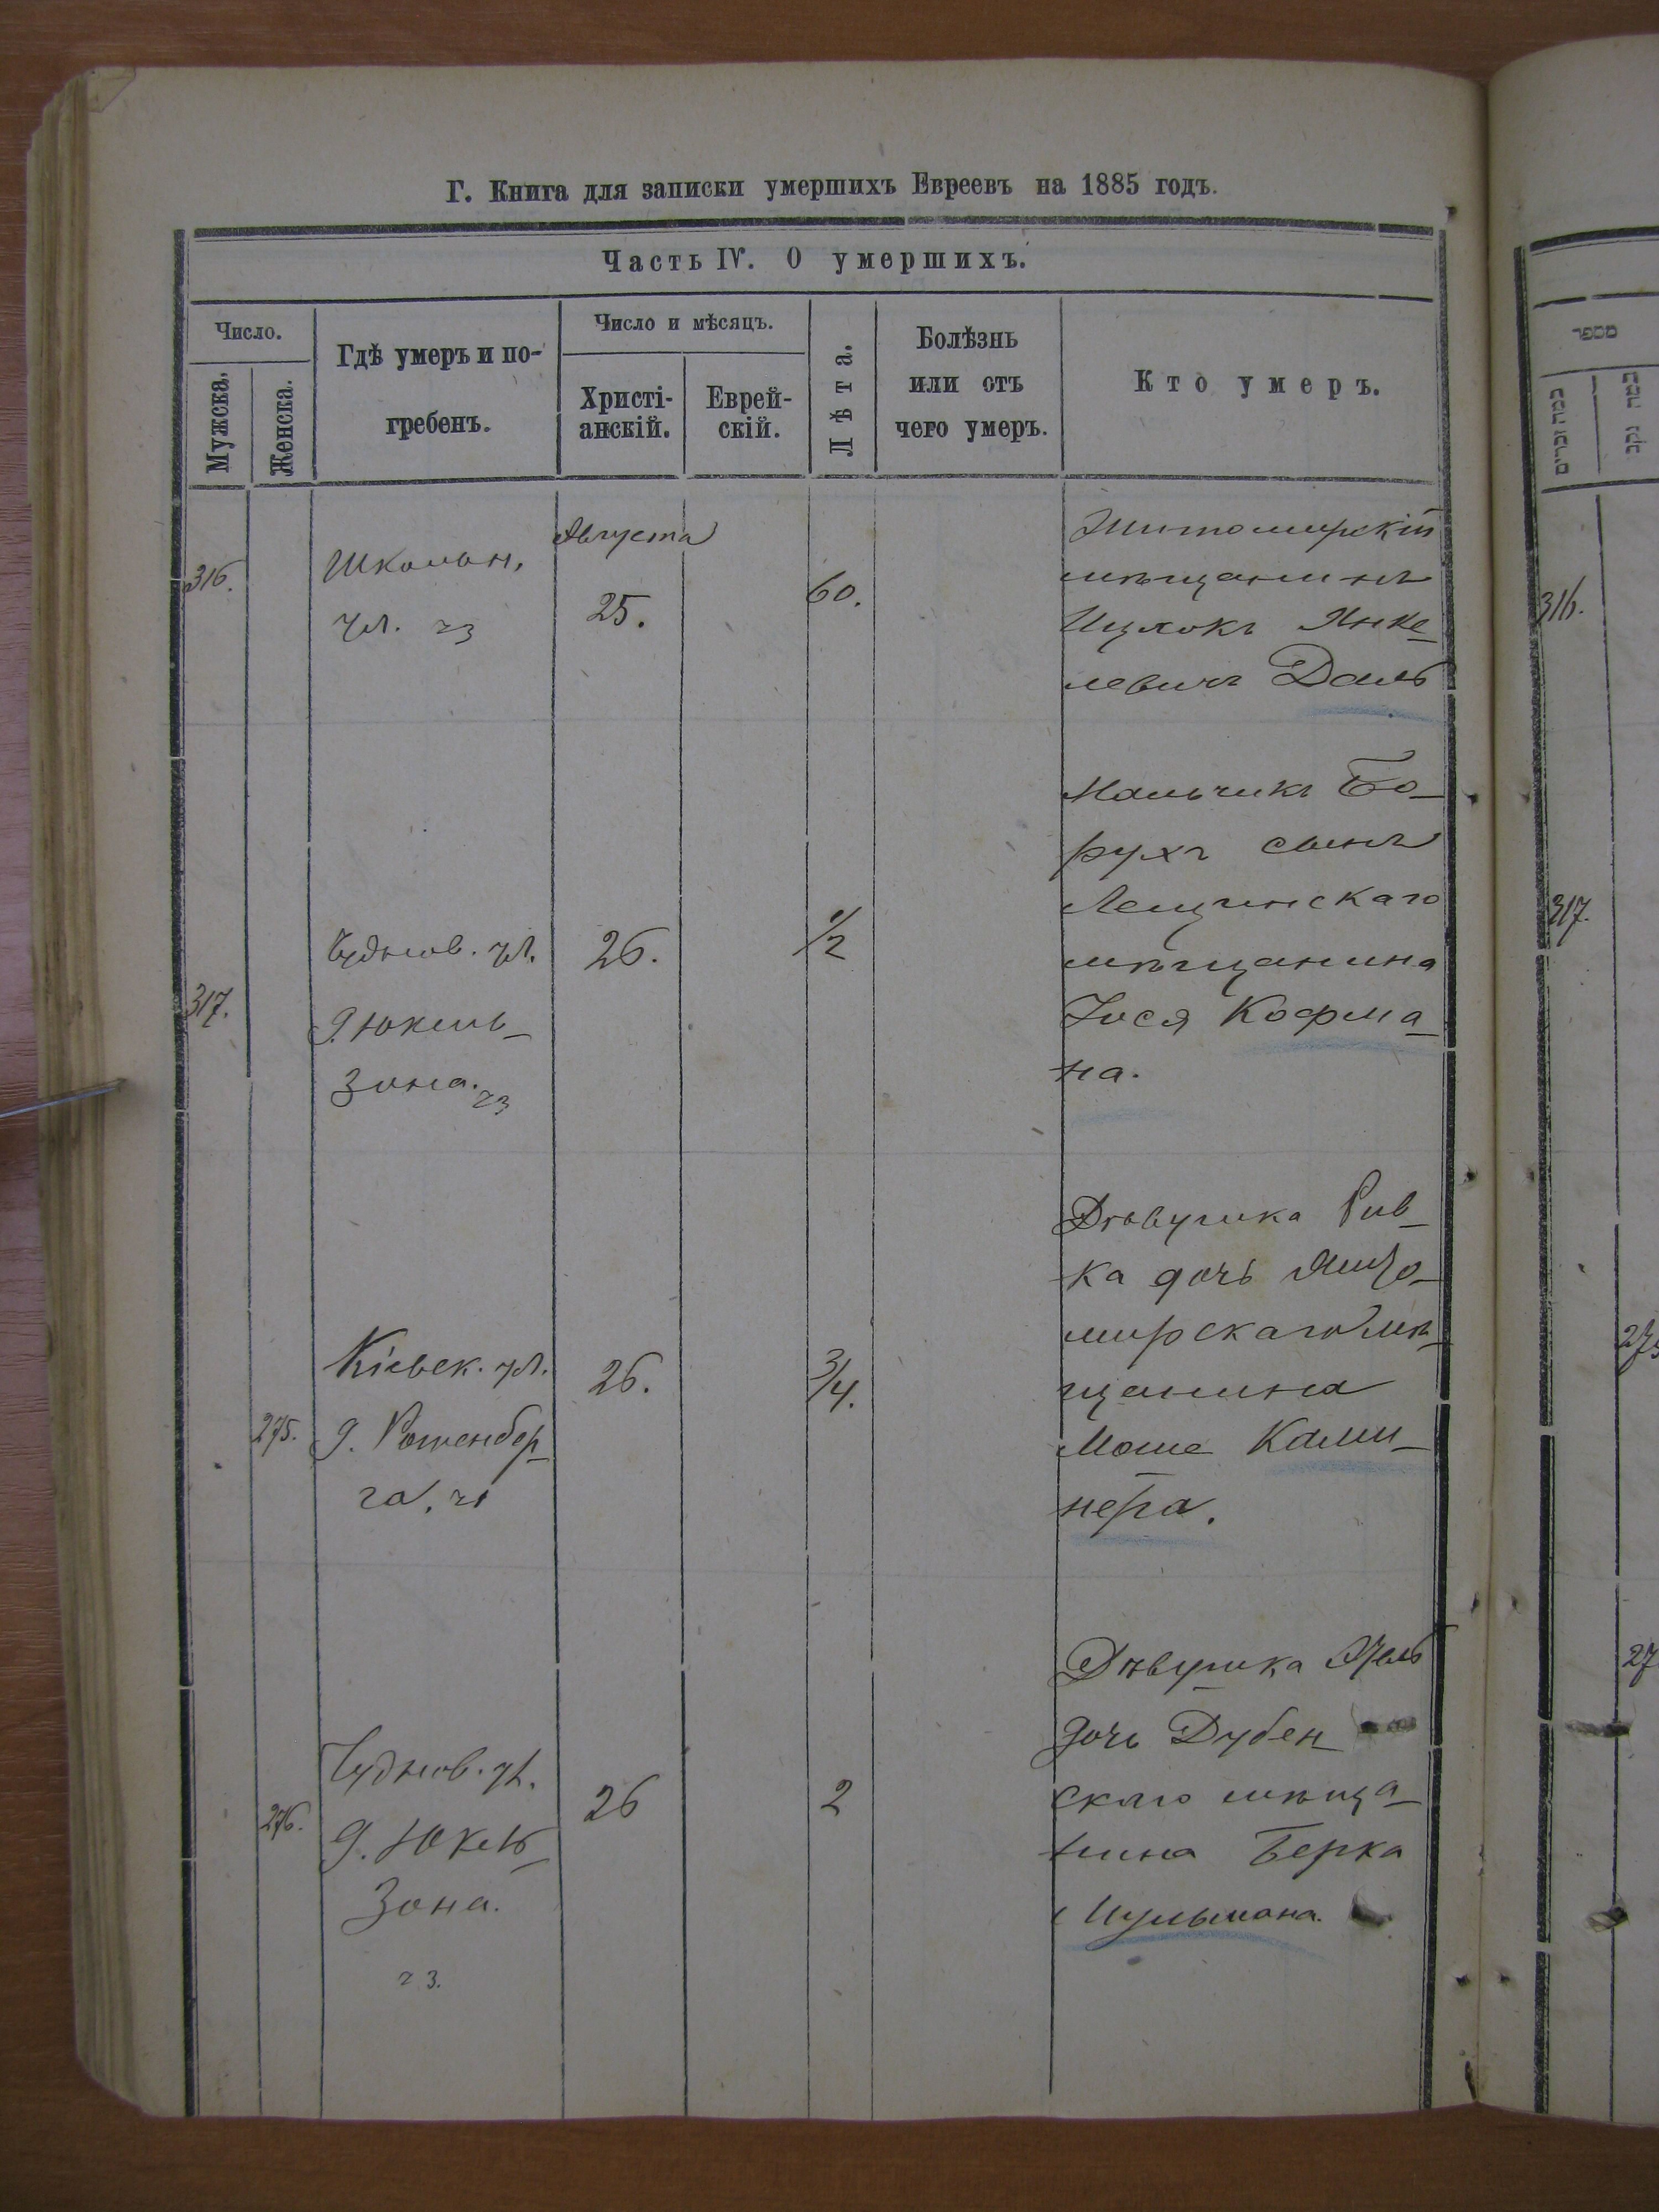 Г. Книга для записки умершихъ Евреевъ на 1885 годъ.
Часть IV. О умершихъ.
Число.
Мужска.
Женска.
Гдѣ умеръ и по-
гребенъ.
Число и мѣсяцъ.
Христі-
анскій.
Еврей-
скій.
Лѣта.
Болѣзнь
или отъ
чего умеръ.
Кто умеръ.
316.
Школьн.
ул. ч 3
Августа
25.
60.
Житомирскій
мѣщанинъ
Ицхокъ Янке-
левичъ Даль
317.
Чуднов. ул.
д. Юкель-
зона. ч 3
26.
1/2
Мальчикъ Бо-
рухъ сынъ
Лещинскаго
мѣщанина
Іося Кофма-
на.
275.
Кіевск. ул.
д. Ротенбер-
га. ч 1
26.
3/4.
Дѣвушка Рив-
ка дочь Жито-
мирскаго мѣ-
щанина
Моше Ками-
нера.
276.
Чуднов. ул.
д. Юкель-
зона.
ч 3.
26
2
Дѣвушка
дочь Дубен-
скаго мѣща-
нина Берка
Шульмана.
מספר
כמה זכרים
כמה נקב
316.
317.
275
27